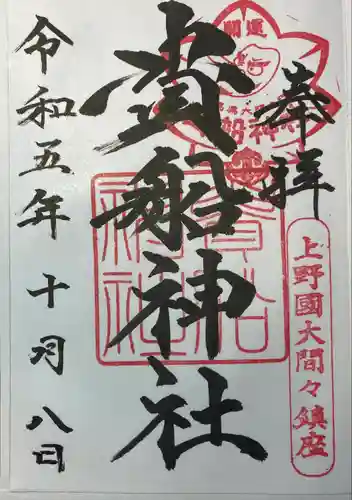 奉拝
上野國大間々鎮座
開運
貴船神社
貴船神社
令和五年十月八日